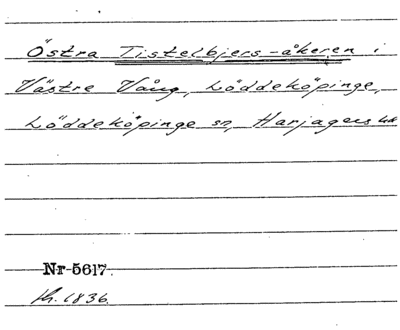 Östra Tistelbjers-åkeren i
Västre Vång, Löddeköpinge,
Löddeköpinge sn, Harjagers hd
Nr 5617.
1836